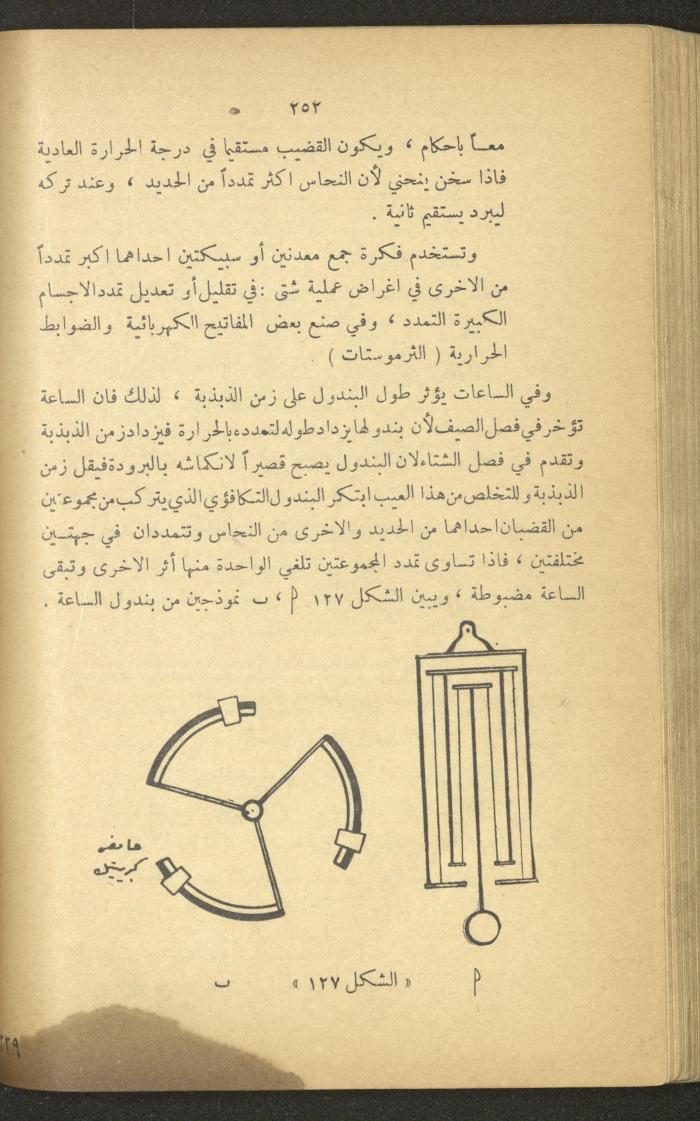 ٢٥٢
معـاً باحكام ، ويكون القضيب مستقيما في درجة الحرارة العادية
فاذا سخن ينحني لأن النحاس اكثر تمدداً من الحديد ، وعند تركه
ليبرد يستقيم ثانية .
وتستخدم فكرة جمع معدنين أو سبيكتين احداهما اكبر تمدداً
من الاخرى في اغراض عملية شتى : في تقليل أو تعديل تمدد الاجسام
الكبيرة التمدد ، وفي صنع بعض المفاتيح االكهربائية والضوابط
الحرارية ( الثرموستات )
وفي الساعات يؤثر طول البندول على زمن الذبذبة ، لذلك فان الساعة
تؤخر في فصل الصيف لأن بندولها يزداد طوله لتمدده بالحرارة فيزداد زمن الذبذبة
وتقدم في فصل الشتاء لان البندول يصبح قصيراً لانكماشه بالبرودة فيقل زمن
الذبذبة و للتخلص من هذا العيب ابتكر البندول التكافؤي الذي يتركب من مجموعتين
من القضبان احداهما من الحديد والاخرى من النحاس وتتمددان في جهتـين
مختلفتين ، فاذا تساوى تمدد المجموعتين تلغي الواحدة منها أثر الاخرى وتبقى
الساعة مضبوطة ، ويبين الشكل ١٢٧ أ ، ب نموذجين من بندول الساعة .
أ
« الشكل ١٢٧ »
ب